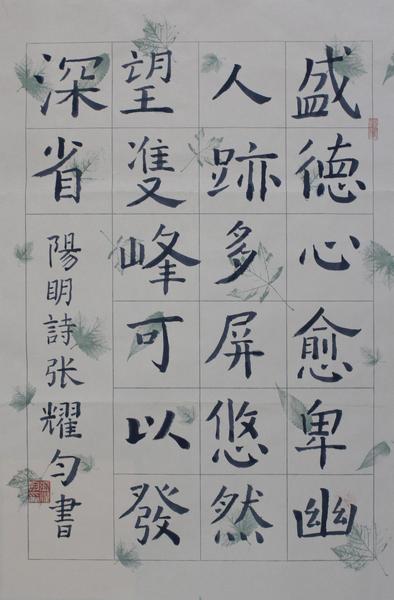 盛德心愈卑幽
人跡多屏悠然
望雙峰可以發
深省
陽明詩张耀匀書